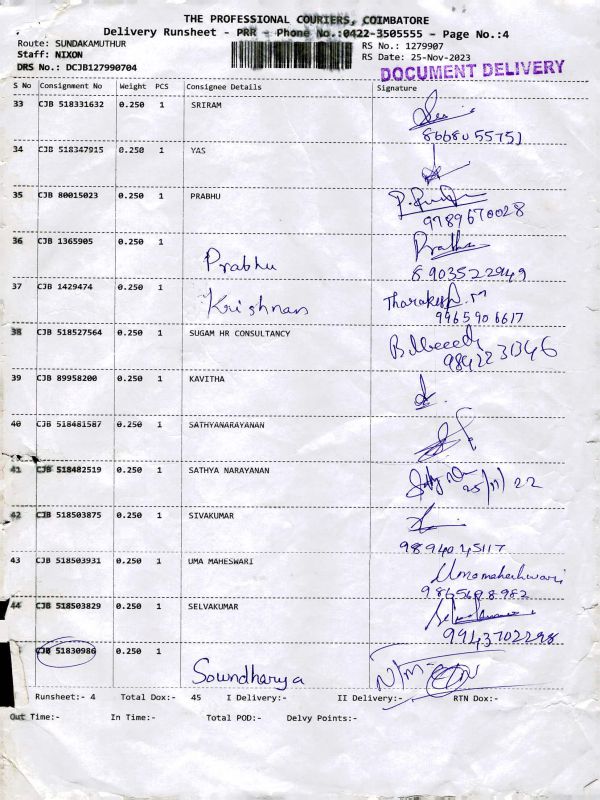 THE PROFESSIONAL COURIERS, COIMBATORE
Delivery Runsheet - PRR - Phone No.:0422-3505555 - Page No.:4
Route: SUNDAKAMUTHUR RS No.: 1279907
Staff: NIXON RS Date: 25-Nov-2023
DRS No.: DCJB127990704 DOCUMENT DELIVERY
S No Consignment No Weight PCS Consignee Details Signature
33 CJB 518331632 0.250 1 SRIRAM
8668055751
34 CJB 518347915 0.250 1 YAS
35 CJB 80015023 0.250 1 PRABHU
9789670028
36 CJB 1365905 0.250 1
Prabhu
8903522949
37 CJB 1429474 0.250 1
Krishnan
9965906617
38 CJB 518527564 0.250 1 SUGAM HR CONSULTANCY
39 CJB 89958200 0.250 1 KAVITHA
40 CJB 518481587 0.250 1 SATHYANARAYANAN
41 CJB 518482519 0.250 1 SATHYA NARAYANAN
25/11/22
42 CJB 518503875 0.250 1 SIVAKUMAR
9894045117
43 CJB 518503931 0.250 1 UMA MAHESWARI
Umamaheshwari
44 CJB 518503829 0.250 1 SELVAKUMAR
9943702298
CJB 51830986 0.250 1
Soundharya
Runsheet:- 4 Total Dox:- 45 I Delivery:- II Delivery:- RTN Dox:-
Out Time:- In Time:- Total POD:- Delvy Points:-